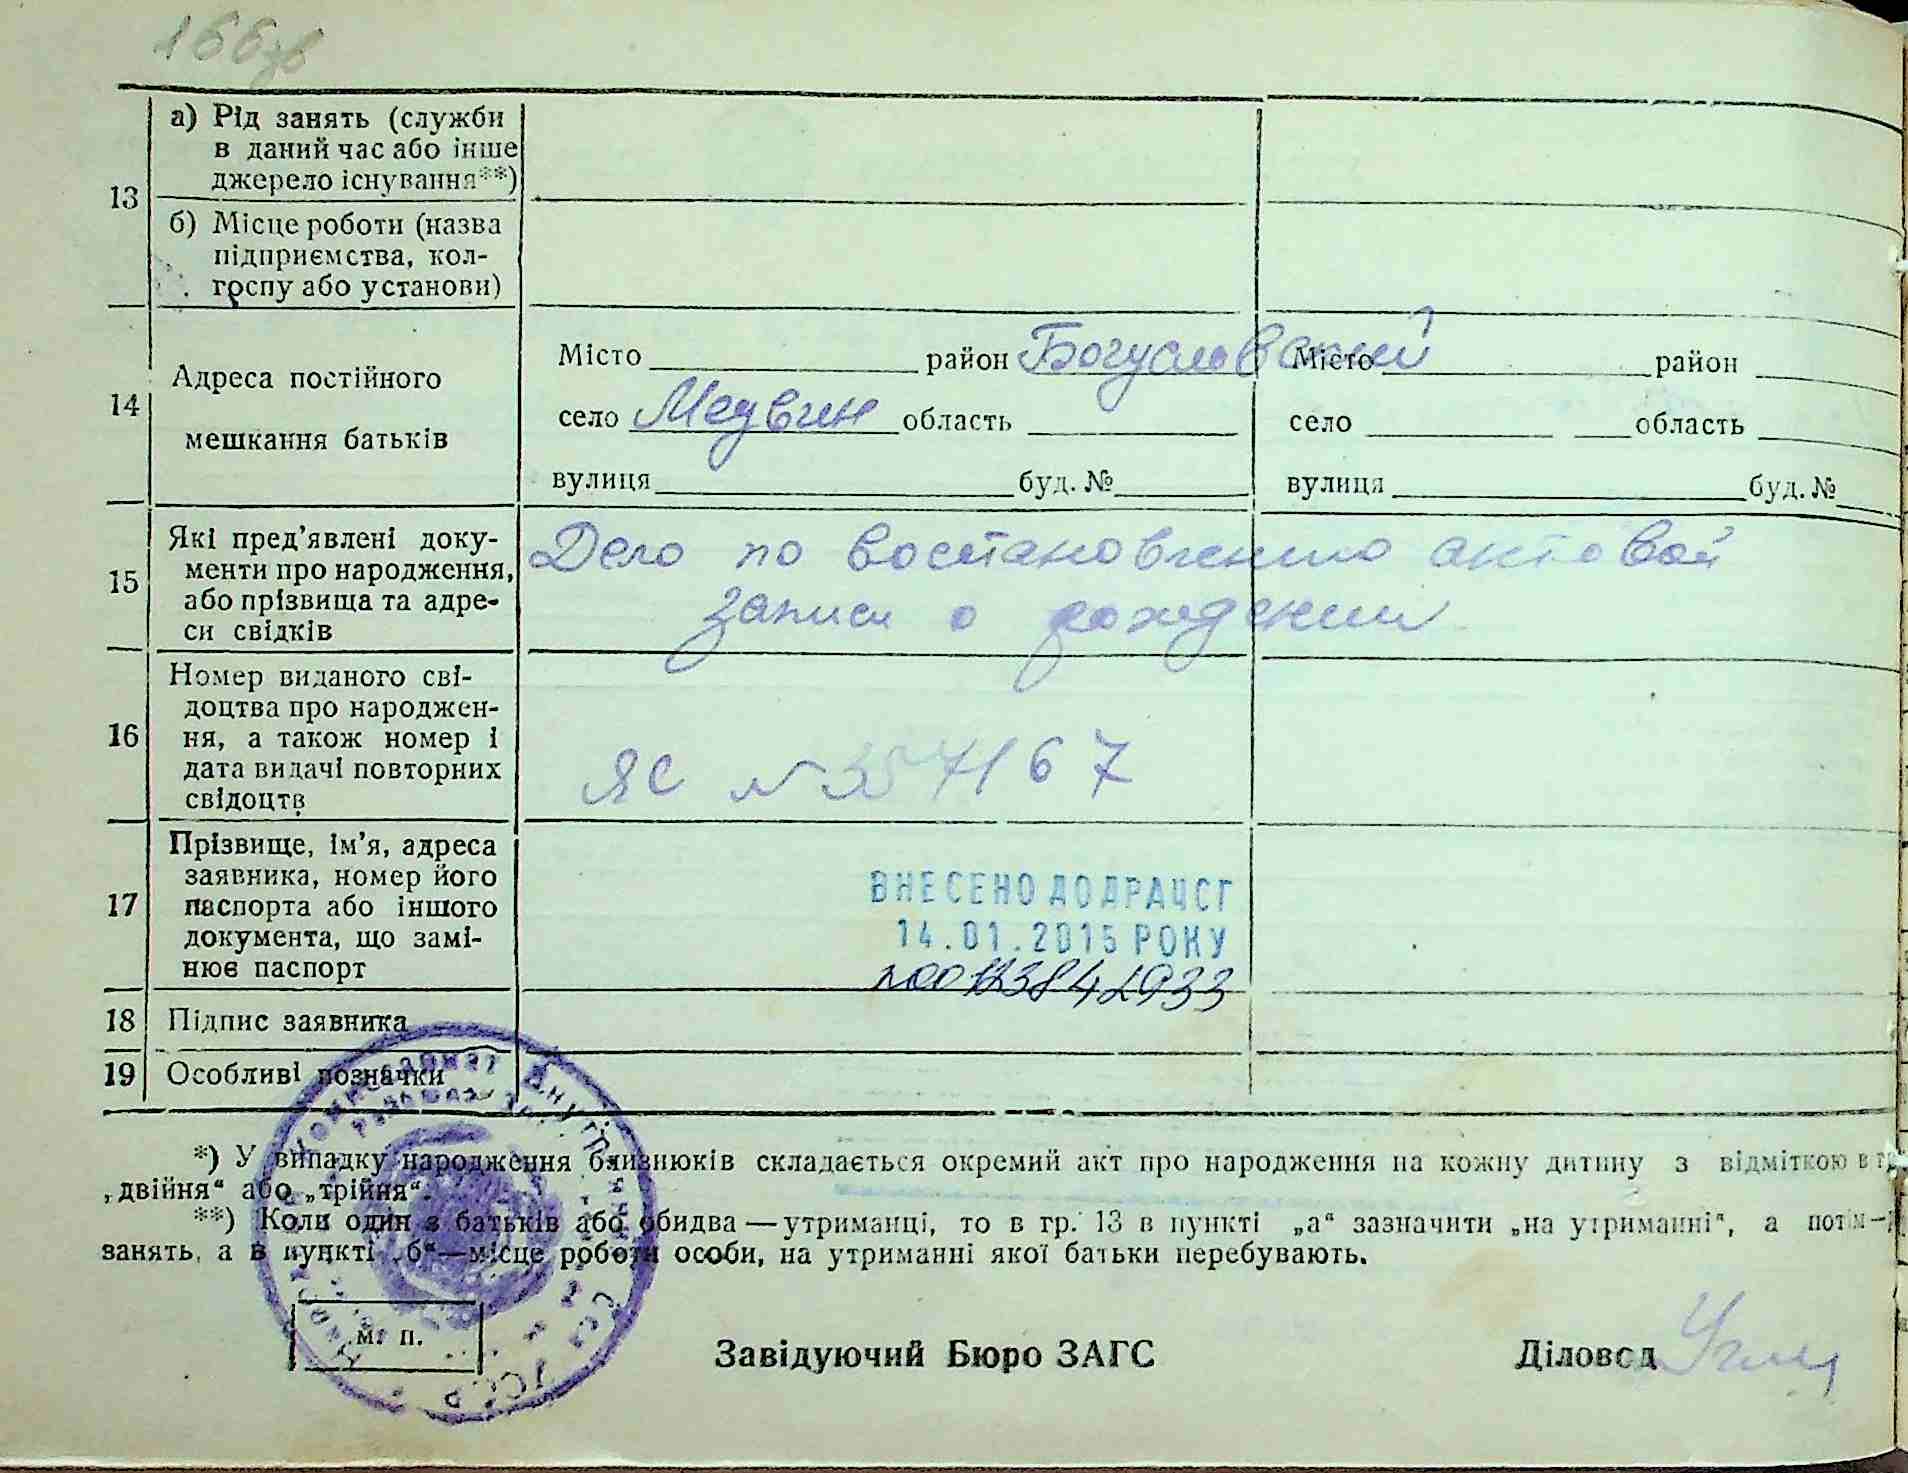 166зв
13
а) Рід занять (служби
в даний час або інше
джерело існування**)
б) Місце роботи (назва
підприємства, кол-
госпу або установи)
14
Адреса постійного
мешкання батьків
Місто район Богуславский
село Медвин область
вулиця буд. №
Місто район
село область
вулиця буд. №
15
Які пред'явлені доку-
менти про народження,
або прізвища та адре-
си свідків
Дело по востановлению актовой
записи о рождении
16
Номер виданого сві-
доцтва про народжен-
ня, а також номер і
дата видачі повторних
свідоцтв
ЯС № 357167
17
Прізвище, ім'я, адреса
заявника, номер його
паспорта або іншого
документа, що замі-
нює паспорт
ВНЕСЕНО ДО ДРАЦСГ
14.01.2015 РОКУ
18 Підпис заявника
19 Особливі позначки
*) У випадку народження близнюків складається окремий акт про народження на кожну дитину з відміткою в гр.
„двійня“ або „трійня“.
**) Коли один з батьків або обидва — утриманці, то в гр. 13 в пункті „а“ зазначити „на утриманні“, а потім —
занять, а в пункті „б“—місце роботи особи, на утриманні якої батьки перебувають.
м. п.
Завідуючий Бюро ЗАГС
Діловод